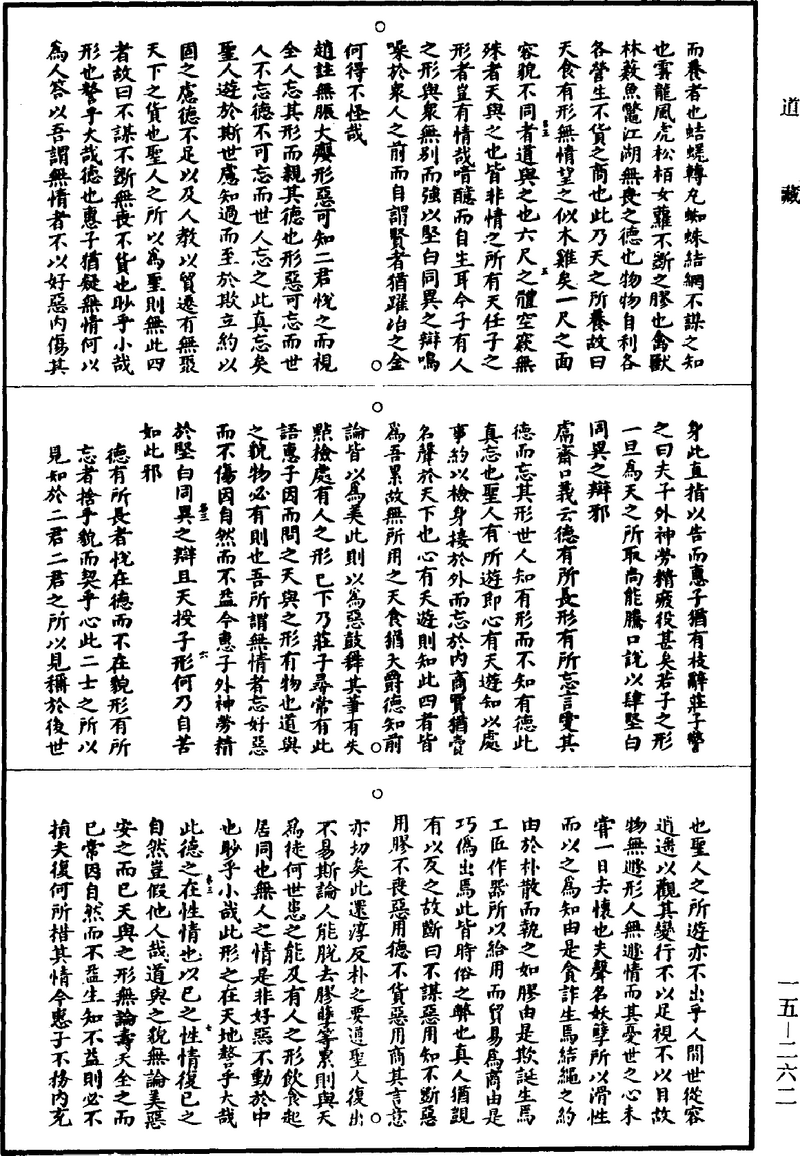 道藏
而養者也蛣蜣轉丸蜘蛛結網不謀之知
也雲龍風虎松栢女蘿不斷之膠也禽獸
林藪魚鼈江湖無喪之德也物物自利各
各營生不貨之商也此乃天之所養故曰
天食有形無情望之似木雞矣一尺之面
容貌不同者道與之也六尺之體空竅無
殊者天與之也皆非情之所有天任子之
形者豈有情哉喑醷而自生耳今子有人
之形與衆無别而強以堅白同異之辯鳴
噪於衆人之前而自謂賢者猶躍冶之金
何得不怪哉
趙註無脤大癭形惡可知二君悅之而視
全人忘其形而親其德也形惡可忘而世
人不忘德不可忘而世人忘之此真忘矣
聖人遊於斯世慮知過而至於欺立約以
固之慮德不足以及人教以貿遷有無聚
天下之貨也聖人之所以為聖則無此四
者故曰不謀不斷無喪不貨也眇乎小哉
形也謷乎大哉德也惠子猶疑無情何以
為人答以吾謂無情者不以好惡内傷其
身此直指以告而惠子猶有枝辭莊子警
之曰夫子外神勞精疲役甚矣若子之形
一旦為天之所取尚能騰口說以肆堅白
同異之辯邪
鬳齋口義云德有所長形有所忘言愛其
德而忘其形世人知有形而不知有德此
真忘也聖人有所遊即心有天遊知以處
事約以檢身接於外而忘於内商賈猶賣
名聲於天下也心有天遊則知此四者皆
為吾累故無所用之天食猶天爵德知前
論皆以為美此則以為惡鼓舞其筆有失
點檢處有人之形已下乃莊子尋常有此
語惠子因而問之天與之形有物也道與
之貌物必有則也吾所謂無情者忘好惡
而不傷因自然而不益今惠子外神勞精
於堅白同異之辯且天授子形何乃自苦
如此邪
德有所長者悅在德而不在貌形有所
忘者捨乎貌而契乎心此二士之所以
見知於二君二君之所以見稱於後世
也聖人之所遊亦不出乎人間世從容
逍遥以觀其變行不以足視不以目故
物無遯形人無遯情而其憂世之心未
嘗一日去懷也夫聲名妖孽所以滑性
而以之為知由是貪詐生焉結繩之約
由於朴散而執之如膠由是欺誕生焉
工匠作器所以給用而貿易為商由是
巧偽出焉此皆時俗之弊也真人猶說
有以反之故斷曰不謀惡用知不斷惡
用膠不喪惡用德不貨惡用商其言意
亦切矣此還淳反朴之要道聖人復出
不易斯論人能脫去膠孽等累則與天
為徒何世患之能及有人之形飲食起
居同也無人之情是非好惡不動於中
也眇乎小哉此形之在天地謷乎大哉
此德之在性情也以已之性情復已之
自然豈假他人哉道與之貌無論美惡
安之而已天與之形無論壽夭全之而
已常因自然而不益生知不益則必不
損夫復何所措其情今惠子不務内充
一五—二六二